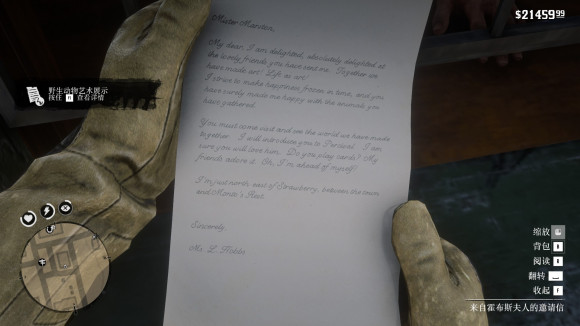 $21459.99
Mister Marston,
My dear, I am delighted, absolutely delighted at
the lovely friends you have sent me. Together we
have made art! Life as art!
I strive to make happiness, frozen in time, and you
have surely made me happy with the animals you
have gathered.
You must come visit and see the world we have made
together. I will introduce you to Percival. I am
sure you will love him. Do you play cards? My
friends adore it. Oh, I'm ahead of myself!
I'm just north east of Strawberry, between the town
and Monto's Rest.
Sincerely,
Ms. L. Hobbs
野生动物艺术展示
按住 查看详情
缩放
背包 B
阅读
翻转
收起 F
来自霍布斯夫人的邀请信